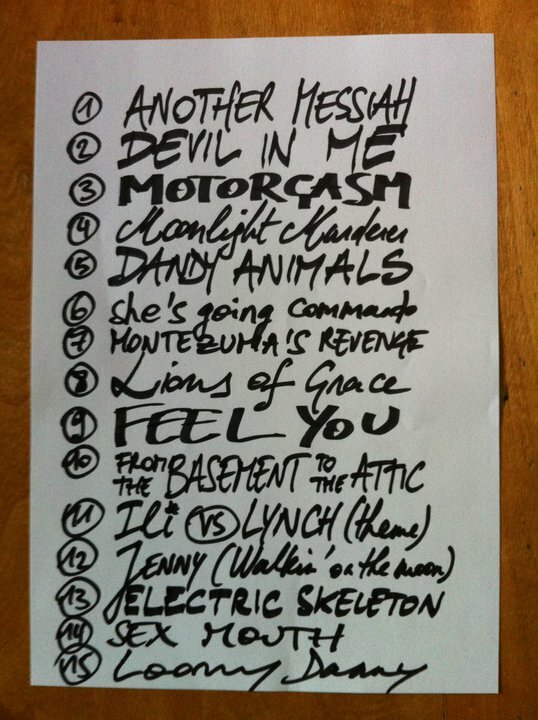 1 ANOTHER MESSIAH
2 DEVIL IN ME
3 MOTORGASM
4 Moonlight Murderer
5 DANDY ANIMALS
6 she's going commando
7 MONTEZUMA'S REVENGE
8 Lions of Grace
9 FEEL YOU
10 FROM THE BASEMENT TO THE ATTIC
11 ILi* VS LYNCH (theme)
12 JENNY (Walkin' on the moon)
13 ELECTRIC SKELETON
14 SEX MOUTH
15 Loony Danny